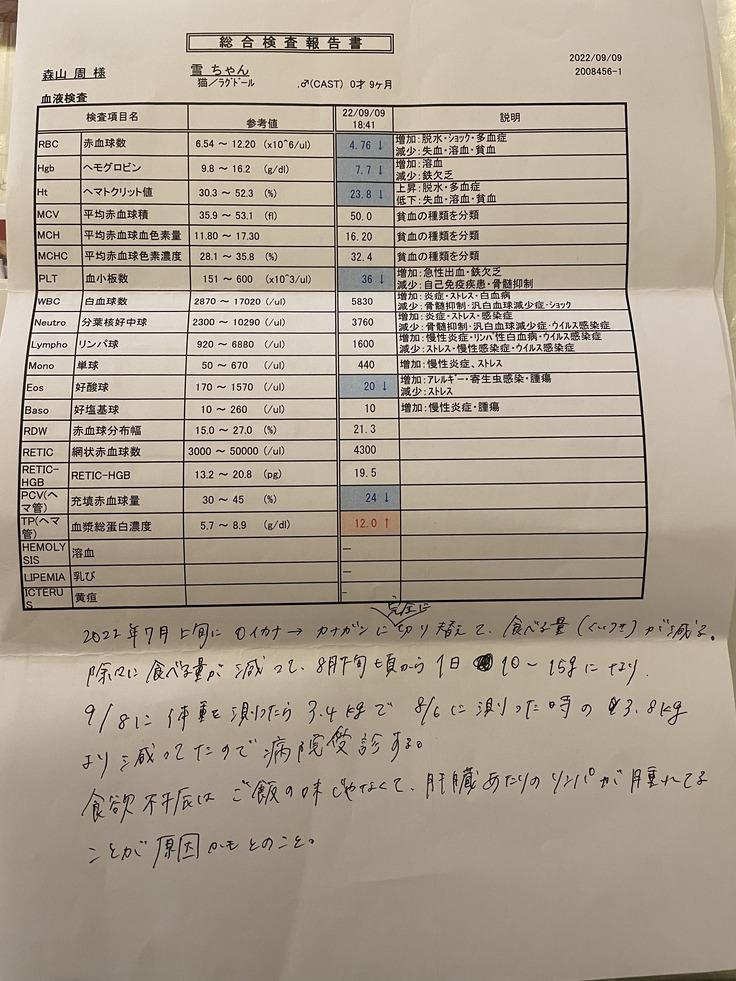 総合検査報告書
2022/09/09
森山 周 様 雪 ちゃん 2008456-1
猫／ﾗｸﾞﾄﾞｰﾙ ♂(CAST) 0才 9ヶ月
血液検査
検査項目名 参考値 22/09/09 18:41 説明
RBC 赤血球数 6.54 ～ 12.20 (x10^6/ul) 4.76 ↓ 増加: 脱水・ショック・多血症
減少: 失血・溶血・貧血
Hgb ヘモグロビン 9.8 ～ 16.2 (g/dl) 7.7 ↓ 増加: 溶血
減少: 鉄欠乏
Ht ヘマトクリット値 30.3 ～ 52.3 (%) 23.8 ↓ 上昇: 脱水・多血症
低下: 失血・溶血・貧血
MCV 平均赤血球積 35.9 ～ 53.1 (fl) 50.0 貧血の種類を分類
MCH 平均赤血球血色素量 11.80 ～ 17.30 16.20 貧血の種類を分類
MCHC 平均赤血球色素濃度 28.1 ～ 35.8 (%) 32.4 貧血の種類を分類
PLT 血小板数 151 ～ 600 (x10^3/ul) 36 ↓ 増加: 急性出血・鉄欠乏
減少: 自己免疫疾患・骨髄抑制
WBC 白血球数 2870 ～ 17020 (/ul) 5830 増加: 炎症・ストレス・白血病
減少: 骨髄抑制・汎白血球減少症・ショック
Neutro 分葉核好中球 2300 ～ 10290 (/ul) 3760 増加: 炎症・ストレス・感染症
減少: 骨髄抑制・汎白血球減少症・ウイルス感染症
Lympho リンパ球 920 ～ 6880 (/ul) 1600 増加: 慢性炎症・リンパ性白血病・ウイルス感染症
減少: ストレス・慢性感染症・ウイルス感染症
Mono 単球 50 ～ 670 (/ul) 440 増加: 慢性炎症、ストレス
Eos 好酸球 170 ～ 1570 (/ul) 20 ↓ 増加: アレルギー・寄生虫感染・腫瘍
減少: ストレス
Baso 好塩基球 10 ～ 260 (/ul) 10 増加: 慢性炎症・腫瘍
RDW 赤血球分布幅 15.0 ～ 27.0 (%) 21.3
RETIC 網状赤血球数 3000 ～ 50000 (/ul) 4300
RETIC-HGB RETIC-HGB 13.2 ～ 20.8 (pg) 19.5
PCV(ヘマ管) 充填赤血球量 30 ～ 45 (%) 24 ↓
TP(ヘマ管) 血漿総蛋白濃度 5.7 ～ 8.9 (g/dl) 12.0 ↑
HEMOLYSIS 溶血 －
LIPEMIA 乳び －
ICTERUS 黄疸 -
完全に
2022年7月上旬に ロイカナ → カナガンに切り替えて、食べる量(くいつき)が減る。
除々に食べる量が減って、8月下旬頃から1日 10～15gになり、
9/8に体重を測ったら3.4kgで 8/6に測った時の3.8kg
より減ってたので病院受診する。
食欲不振はご飯の味じゃなくて、肝臓あたりのリンパが腫れてる
ことが原因かもとのこと。